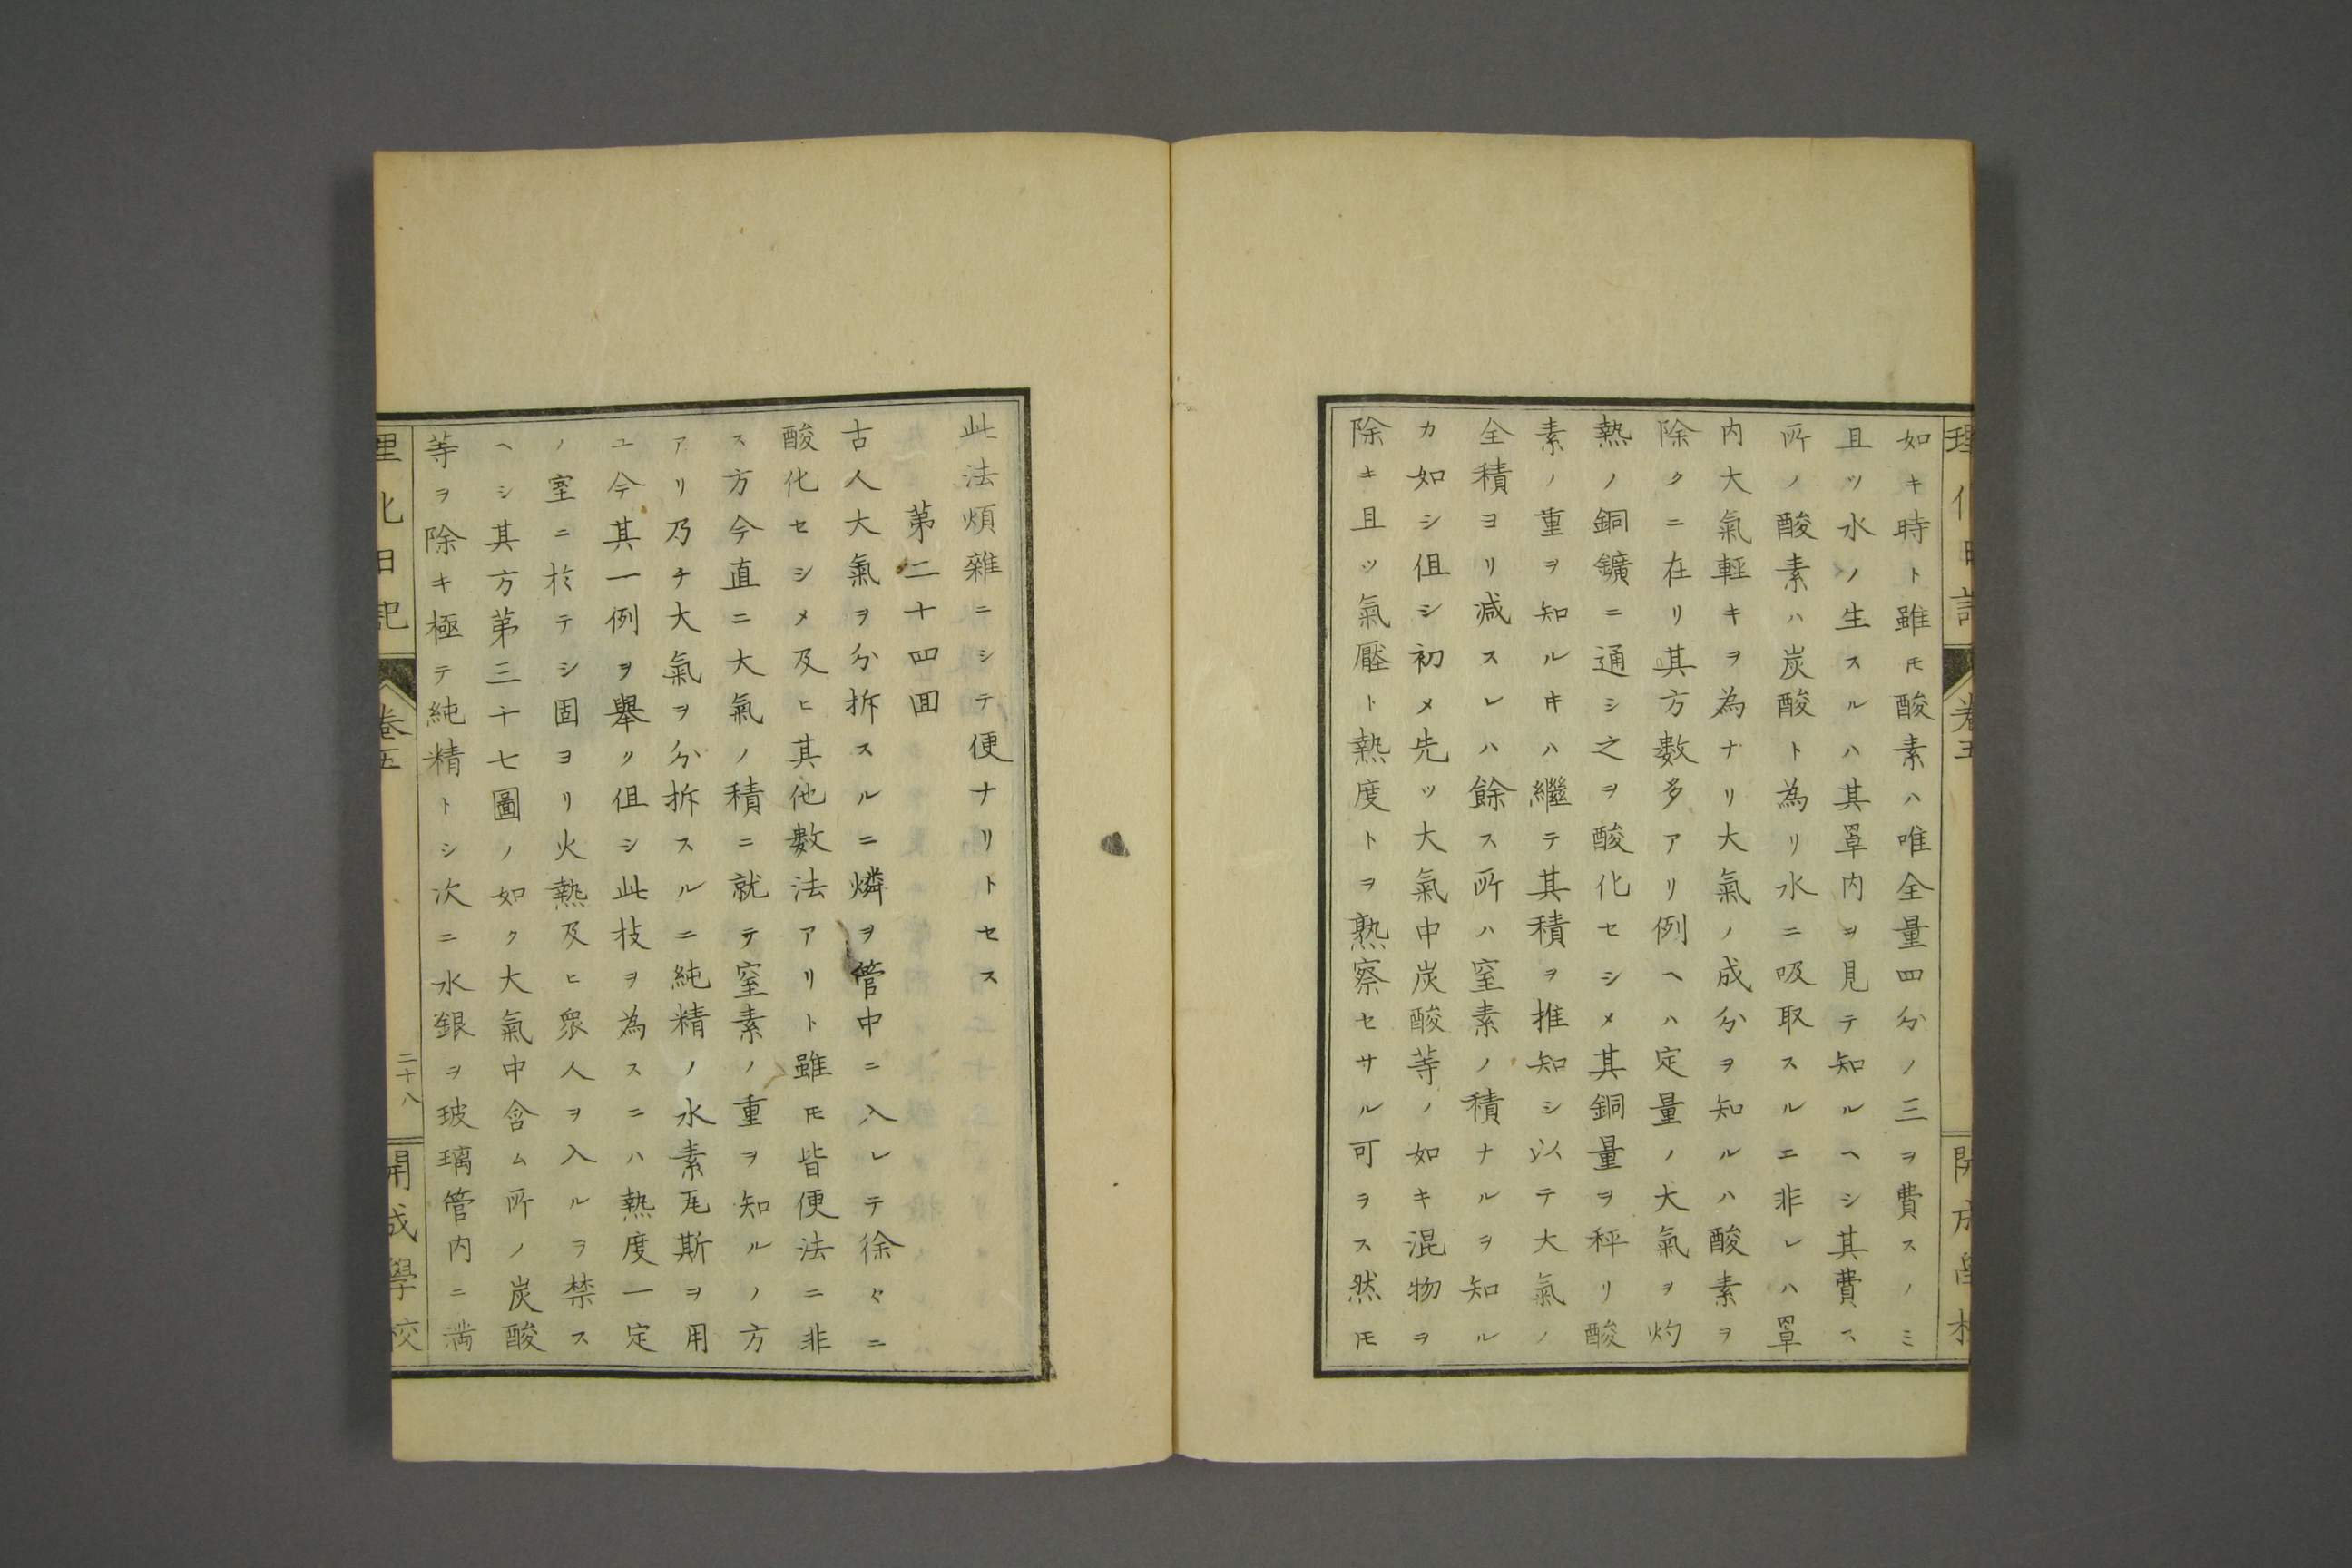 理化日記 卷五 開成學校
如キ時ト雖モ酸素ハ唯全量四分ノ三ヲ費スノミ
且ツ水ノ生スルハ其罩内ヲ見テ知ルヘシ其費ス
所ノ酸素ハ炭酸ト為リ水ニ吸取スルニ非レハ罩
内大氣輕キヲ為ナリ大氣ノ成分ヲ知ルハ酸素ヲ
除クニ在リ其方數多アリ例ヘハ定量ノ大氣ヲ灼
熱ノ銅鑛ニ通シ之ヲ酸化セシメ其銅量ヲ秤リ酸
素ノ重ヲ知ルキハ繼テ其積ヲ推知シ以テ大氣ノ
全積ヨリ減スレハ餘ス所ハ窒素ノ積ナルヲ知ル
カ如シ伹シ初メ先ツ大氣中炭酸等ノ如キ混物ヲ
除キ且ツ氣壓ト熱度トヲ熟察セサル可ラス然モ
此法煩雜ニシテ便ナリトセス
第二十四回
古人大氣ヲ分拆スルニ燐ヲ管中ニ入レテ徐々ニ
酸化セシメ及ヒ其他數法アリト雖モ皆便法ニ非
ス方今直ニ大氣ノ積ニ就テ窒素ノ重ヲ知ルノ方
アリ乃チ大氣ヲ分拆スルニ純精ノ水素瓦斯ヲ用
ユ今其一例ヲ舉ク伹シ此技ヲ為スニハ熱度一定
ノ室ニ於テシ固ヨリ火熱及ヒ衆人ヲ入ルヲ禁ス
ヘシ其方第三十七圖ノ如ク大氣中含ム所ノ炭酸
等ヲ除キ極テ純精トシ次ニ水銀ヲ玻璃管内ニ満
理化日記 卷五 二十八 開成學校